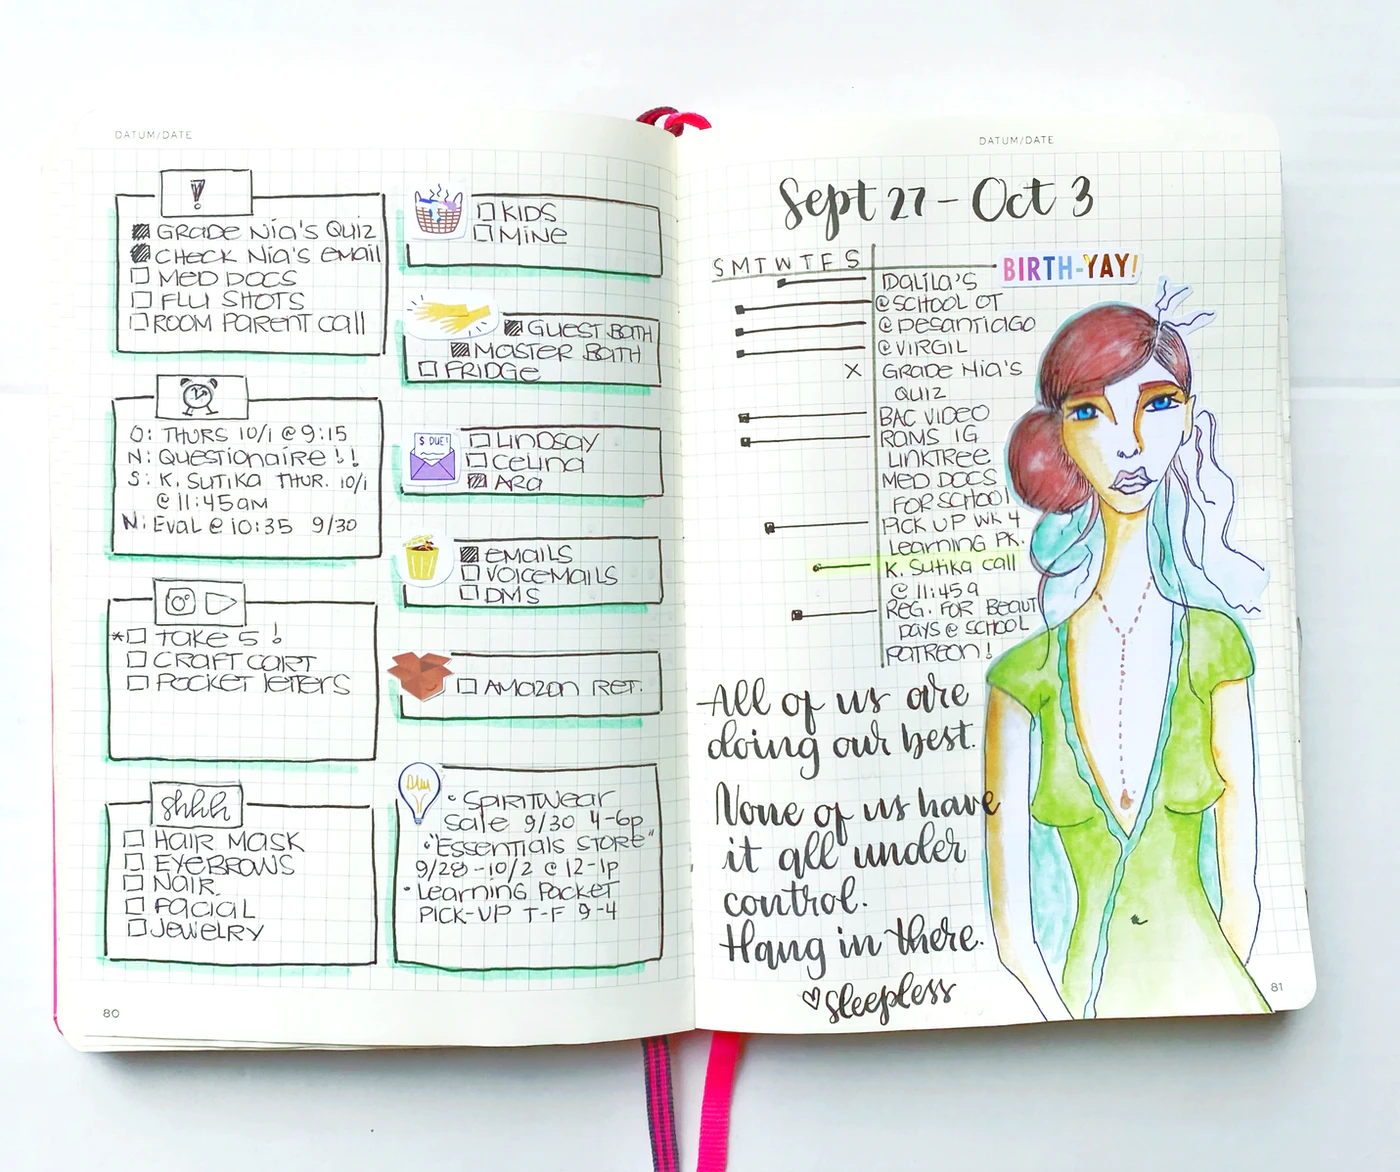 DATUM/DATE
!
GRADE Nia's QUIZ
CHECK Nia's EMAIL
MED DOCS
FLU SHOTS
ROOM PARENT CALL
O: THURS 10/1 @ 9:15
N: QUESTIONAIRE !!
S: K. SUTIKA THUR. 10/1
@ 11:45AM
N: EVAL @ 10:35 9/30
* TAKE 5!
CRAFT CART
POCKET LETTERS
shhh
HAIR MASK
EYEBROWS
NAIR
FACIAL
JEWELRY
80
KIDS
MINE
GUEST BATH
MASTER BATH
FRIDGE
$ DUE!
LINDSAY
CELINA
ARA
EMAILS
VOICEMAILS
DMS
AMAZON RET.
• SPIRITWEAR
SALE 9/30 4-6p
• "ESSENTIALS STORE"
9/28-10/2 @ 12-1p
• LEARNING PACKET
PICK-UP T-F 9-4
DATUM/DATE
Sept 27 - Oct 3
S M T W T F S
BIRTH-YAY!
DALILA'S
@ SCHOOL OT
@ DESANTIAGO
@ VIRGIL
X GRADE Nia's
QUIZ
BAC VIDEO
ROMS IG
LINKTREE.
MED DOCS
FOR SCHOOL
PICK UP WK 4
LEARNING PK.
K. SUTIKA CALL
@ 11:45a
REG. FOR BEAUT
DAYS @ SCHOOL
PATREON!
All of us are
doing our best.
None of us have
it all under
control.
Hang in there.
♡ sleepless
81